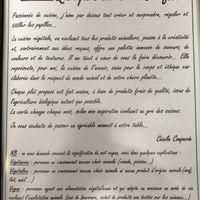 Passionnée de cuisine, j'aime par dessus tout créer et surprendre, régaler et
titiller les papilles...
La cuisine végétale, en excluant tous les produits animaliers, pousse à la créativité
et, contrairement aux idées reçues, offre une palette immense de saveurs, de
couleurs et de textures. Il me tient à cœur de vous le faire découvrir... Elle
représente, pour moi, la cuisine de l'avenir, saine pour le corps et éthique car
élaborée dans le respect du monde animal et de notre chère planète...
Chaque plat proposé est fait maison, à base de produits frais de qualité, issus de
l'agriculture biologique autant que possible.
La carte change chaque mois, selon mon inspiration évoluant au gré des saisons.
Je vous souhaite de passer un agréable moment à votre table...
Cécile Couperie
NB: on nous demande souvent la signification du mot vegan, voici donc quelques explications:
Végétarien: personne ne consommant aucune chair animale (viande, poisson...)
Végétalien: personne ne consommant aucune chair animale ni aucun produit d'origine animale (œuf,
lait, miel...)
Vegan: personne ayant une alimentation végétalienne et qui adopte au maximum un mode de vie
excluant l'exploitation animale (pas de fourrure, achat de produits non testés sur les animaux...)